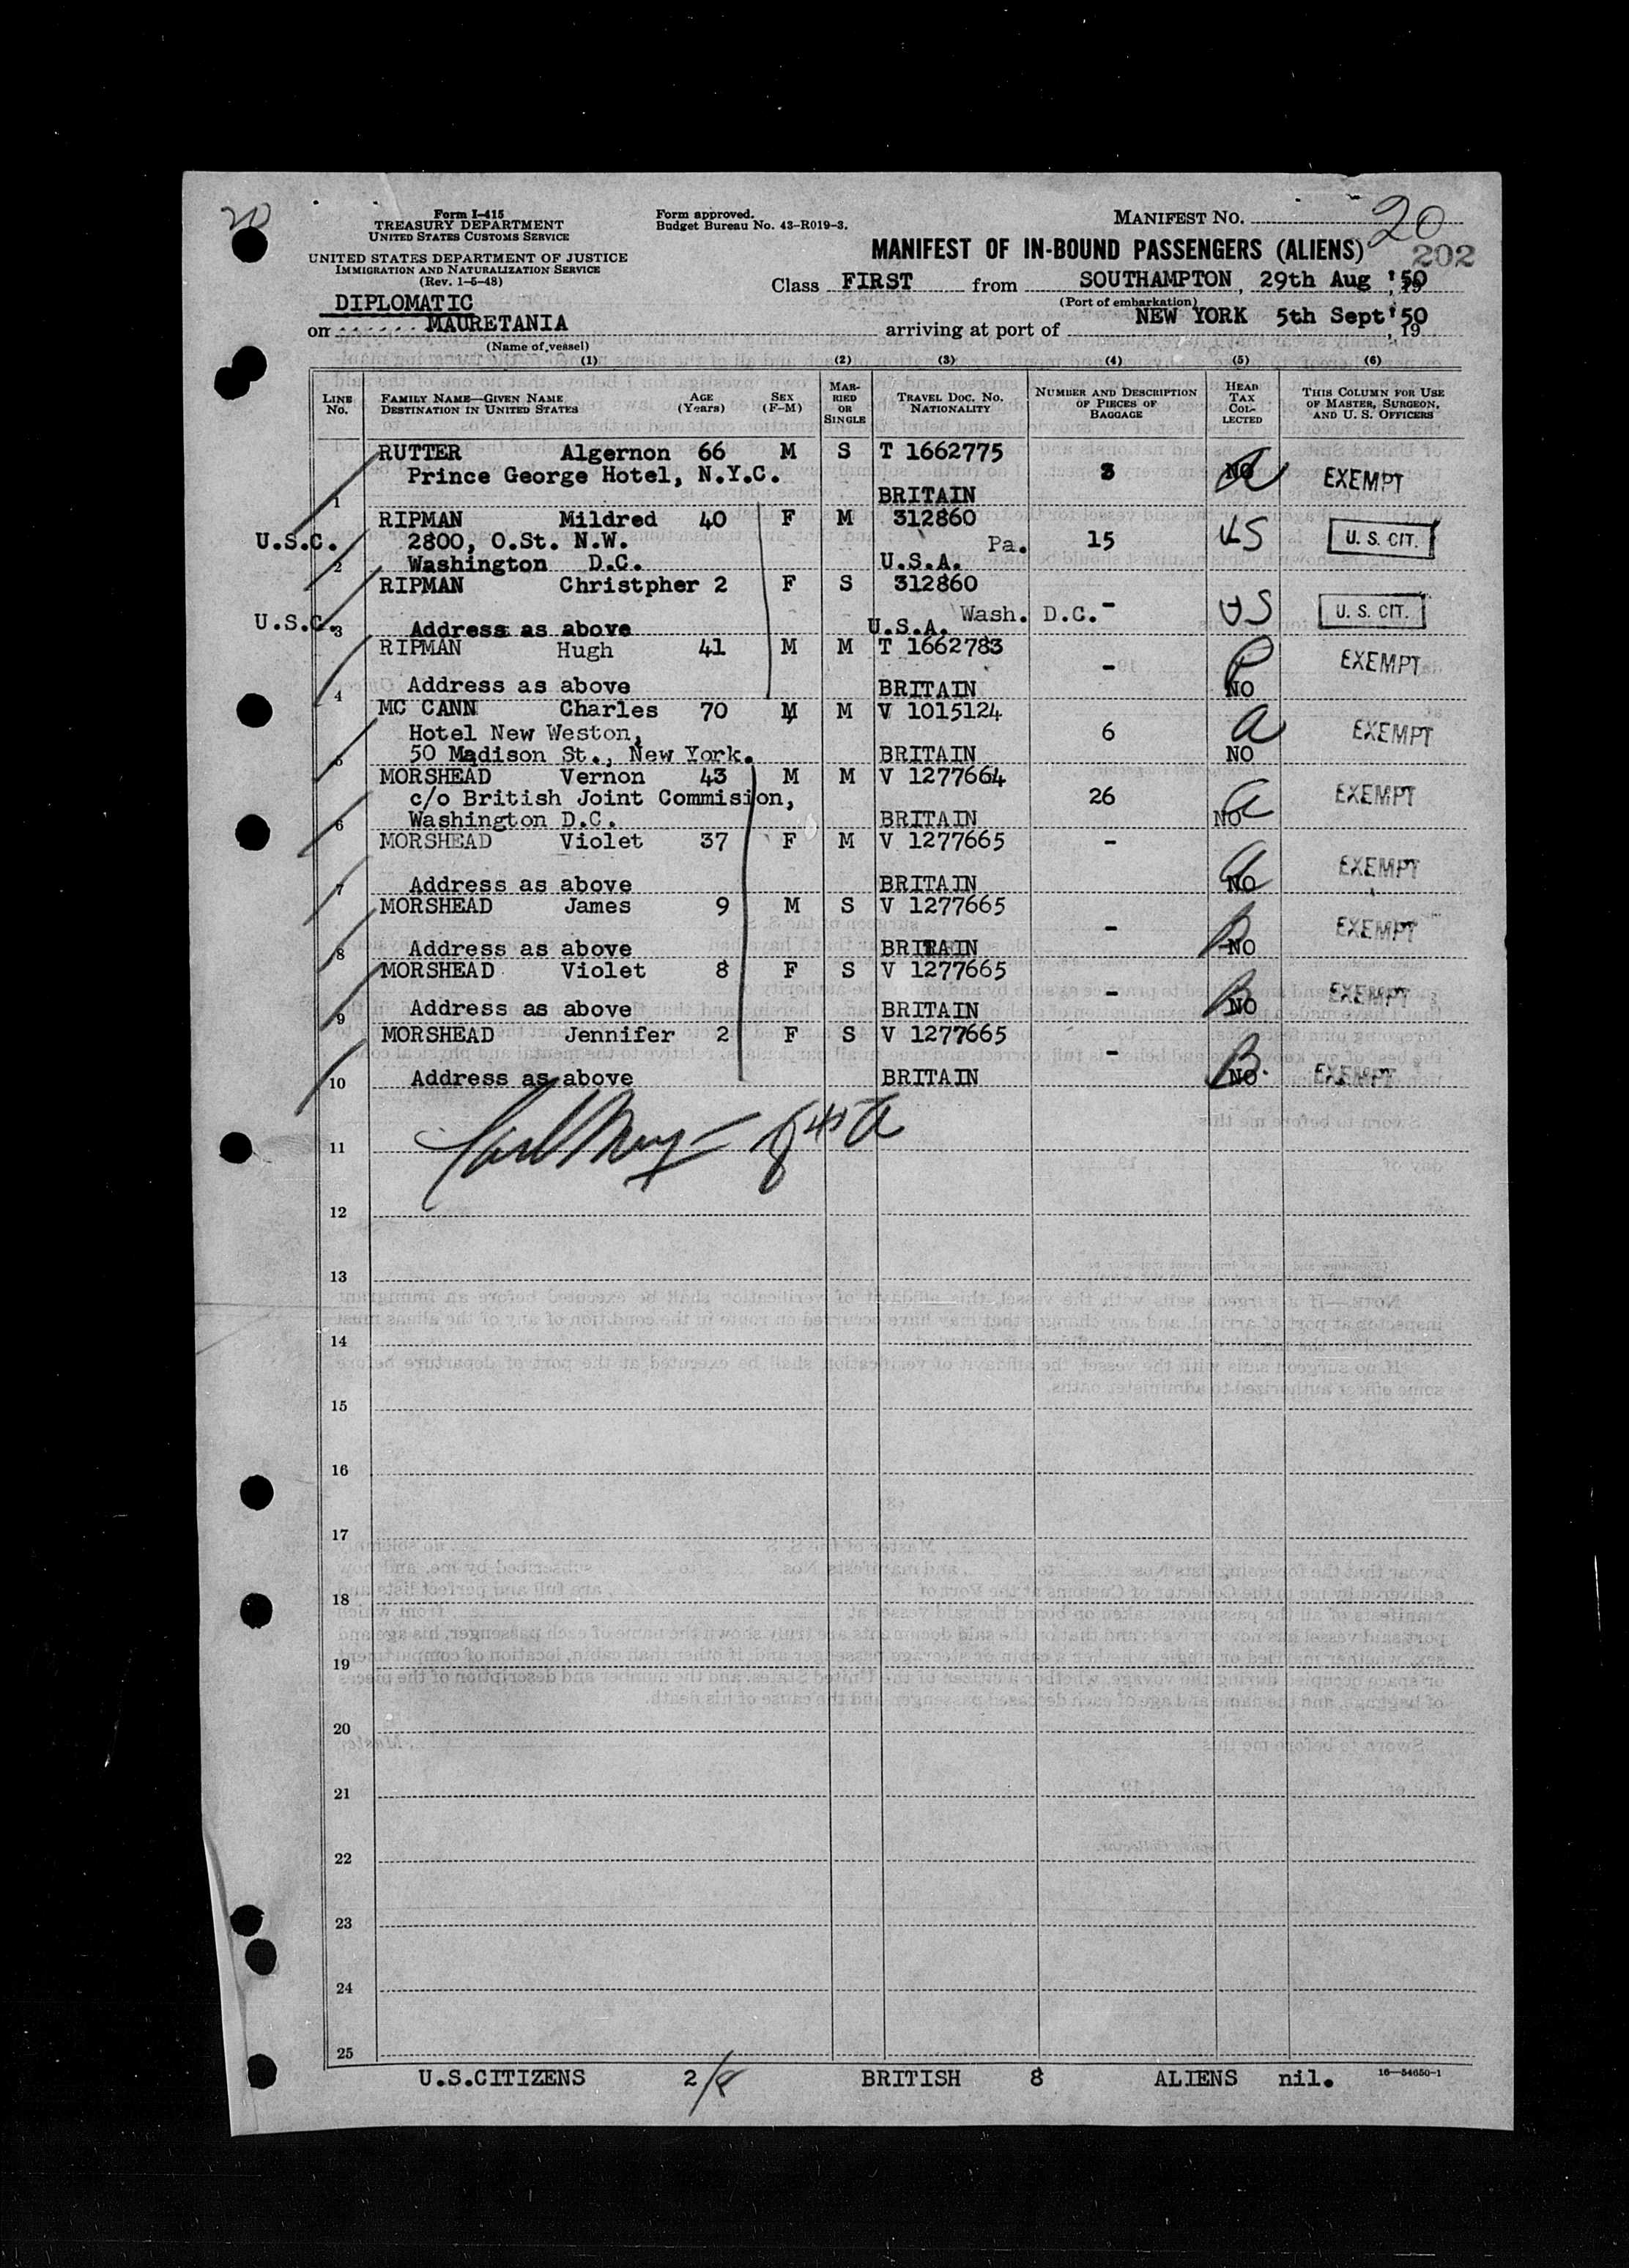 20
Form I-415
TREASURY DEPARTMENT
UNITED STATES CUSTOMS SERVICE
UNITED STATES DEPARTMENT OF JUSTICE
IMMIGRATION AND NATURALIZATION SERVICE
(Rev. 1-5-48)
Form approved.
Budget Bureau No. 43-R019-3.
MANIFEST No. 20
MANIFEST OF IN-BOUND PASSENGERS (ALIENS)
202
Class FIRST from SOUTHAMPTON, 29th Aug '50
(Port of embarkation)
DIPLOMATIC
on MAURETANIA arriving at port of NEW YORK 5th Sept '50
, 19
(Name of vessel)
(1) (2) (3) (4) (5) (6)
LINE No. FAMILY NAME—GIVEN NAME DESTINATION IN UNITED STATES AGE (Years) SEX (F-M) MARRIED OR SINGLE TRAVEL DOC. NO. NATIONALITY NUMBER AND DESCRIPTION OF PIECES OF BAGGAGE HEAD TAX COLLECTED THIS COLUMN FOR USE OF MASTER, SURGEON, AND U. S. OFFICERS
RUTTER Algernon 66 M S T 1662775
Prince George Hotel, N.Y.C. 3 NO EXEMPT
1 BRITAIN
RIPMAN Mildred 40 F M 312860
U.S.C. 2800, O.St. N.W. Pa. 15 US U. S. CIT.
2 Washington D.C. U.S.A.
RIPMAN Christpher 2 F S 312860
U.S.C. Wash. D.C. - US U. S. CIT.
3 Address as above U.S.A.
RIPMAN Hugh 41 M M T 1662783
- EXEMPT
4 Address as above BRITAIN NO
MC CANN Charles 70 M M V 1015124
Hotel New Weston, 6 a EXEMPT
5 50 Madison St., New York. BRITAIN NO
MORSHEAD Vernon 43 M M V 1277664
c/o British Joint Commision, 26 a EXEMPT
6 Washington D.C. BRITAIN NO
MORSHEAD Violet 37 F M V 1277665 -
EXEMPT
7 Address as above BRITAIN NO
MORSHEAD James 9 M S V 1277665
- B EXEMPT
8 Address as above BRITAIN NO
MORSHEAD Violet 8 F S V 1277665
- B EXEMPT
9 Address as above BRITAIN NO
MORSHEAD Jennifer 2 F S V 1277665
- B
10 Address as above BRITAIN NO EXEMPT
11
12
13
14
15
16
17
18
19
20
21
22
23
24
25
U.S.CITIZENS 2/8 BRITISH 8 ALIENS nil. 16—54650-1